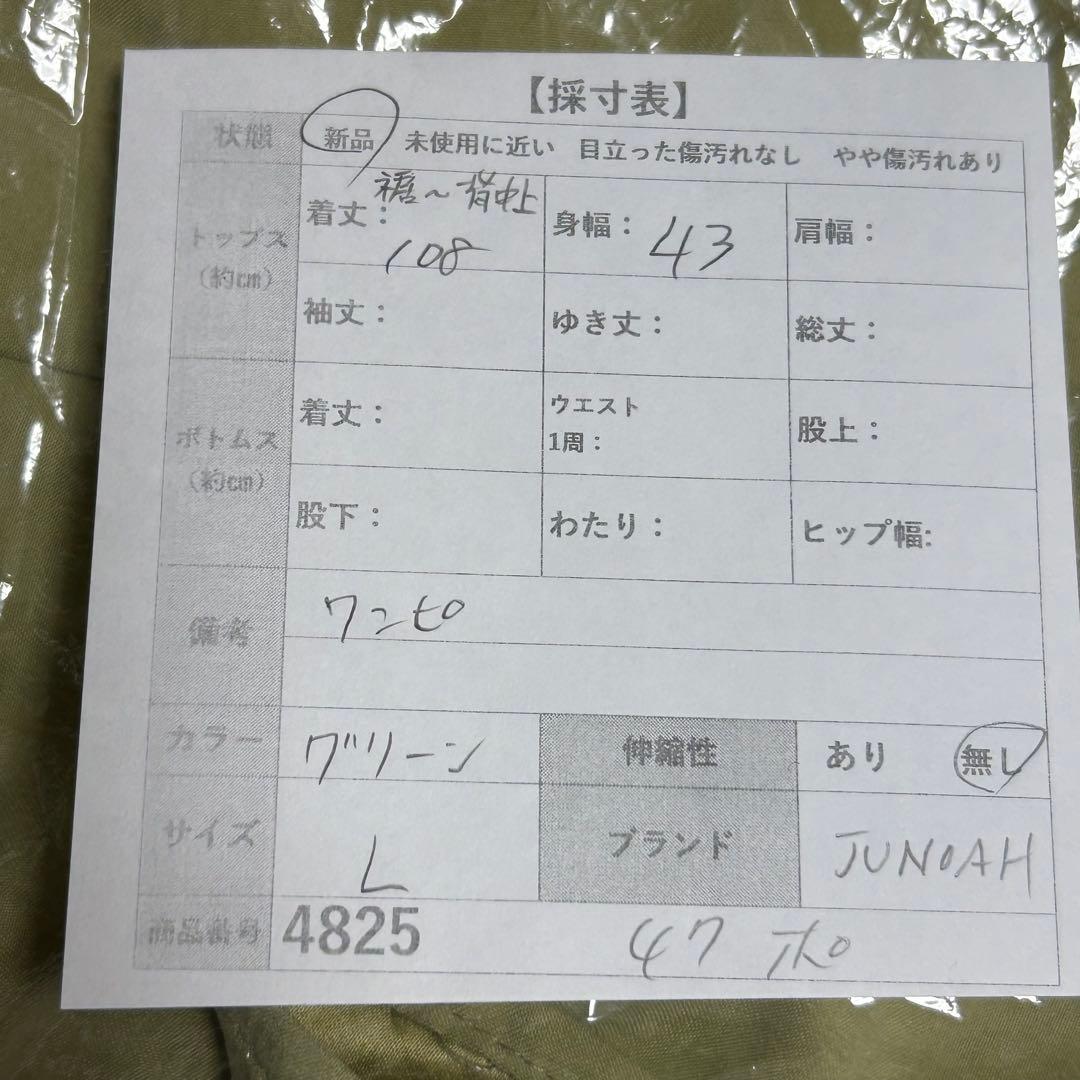 【採寸表】
状態 新品 未使用に近い 目立った傷汚れなし やや傷汚れあり
トップス(約cm)
着丈: 裾〜背中上 108 身幅: 43 肩幅:
袖丈: ゆき丈: 総丈:
ボトムス(約cm)
着丈: ウエスト1周: 股上:
股下: わたり: ヒップ幅:
備考 ワンピ
カラー グリーン 伸縮性 あり 無し
サイズ L ブランド JUNOAH
商品番号 4825 47 ポ